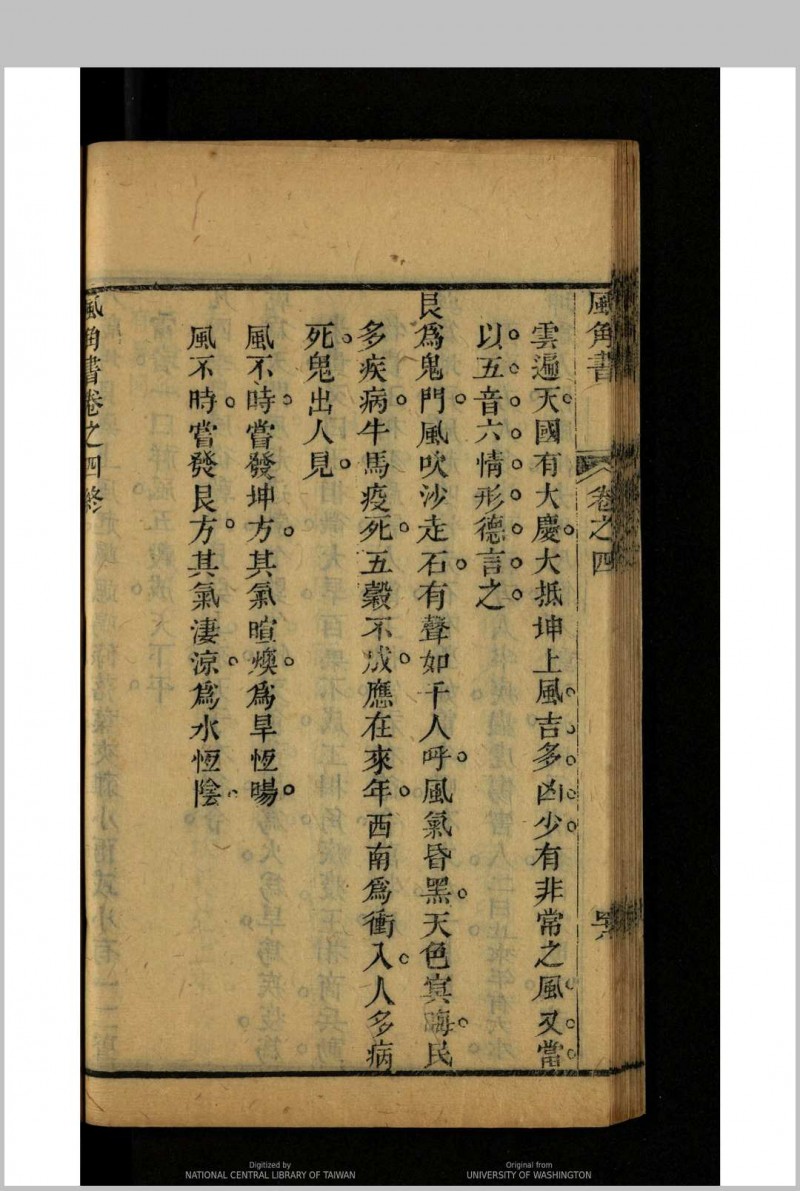 風角書 卷之四
雲遍天國有大慶大抵坤上風吉多凶少有非常之風又當
以五音六情形德言之
艮為鬼門風吹沙走石有聲如千人呼風氣昏黑天色寞晦民
多疾病牛馬疫死五穀不成應在來年西南為衝入人多病
死鬼出人見
風不時嘗發坤方其氣暄煥為旱恆暘
風不時嘗發艮方其氣淒涼為水恆陰
風角書卷之四終
Digitized by
NATIONAL CENTRAL LIBRARY OF TAIWAN
Original from
UNIVERSITY OF WASHINGTON